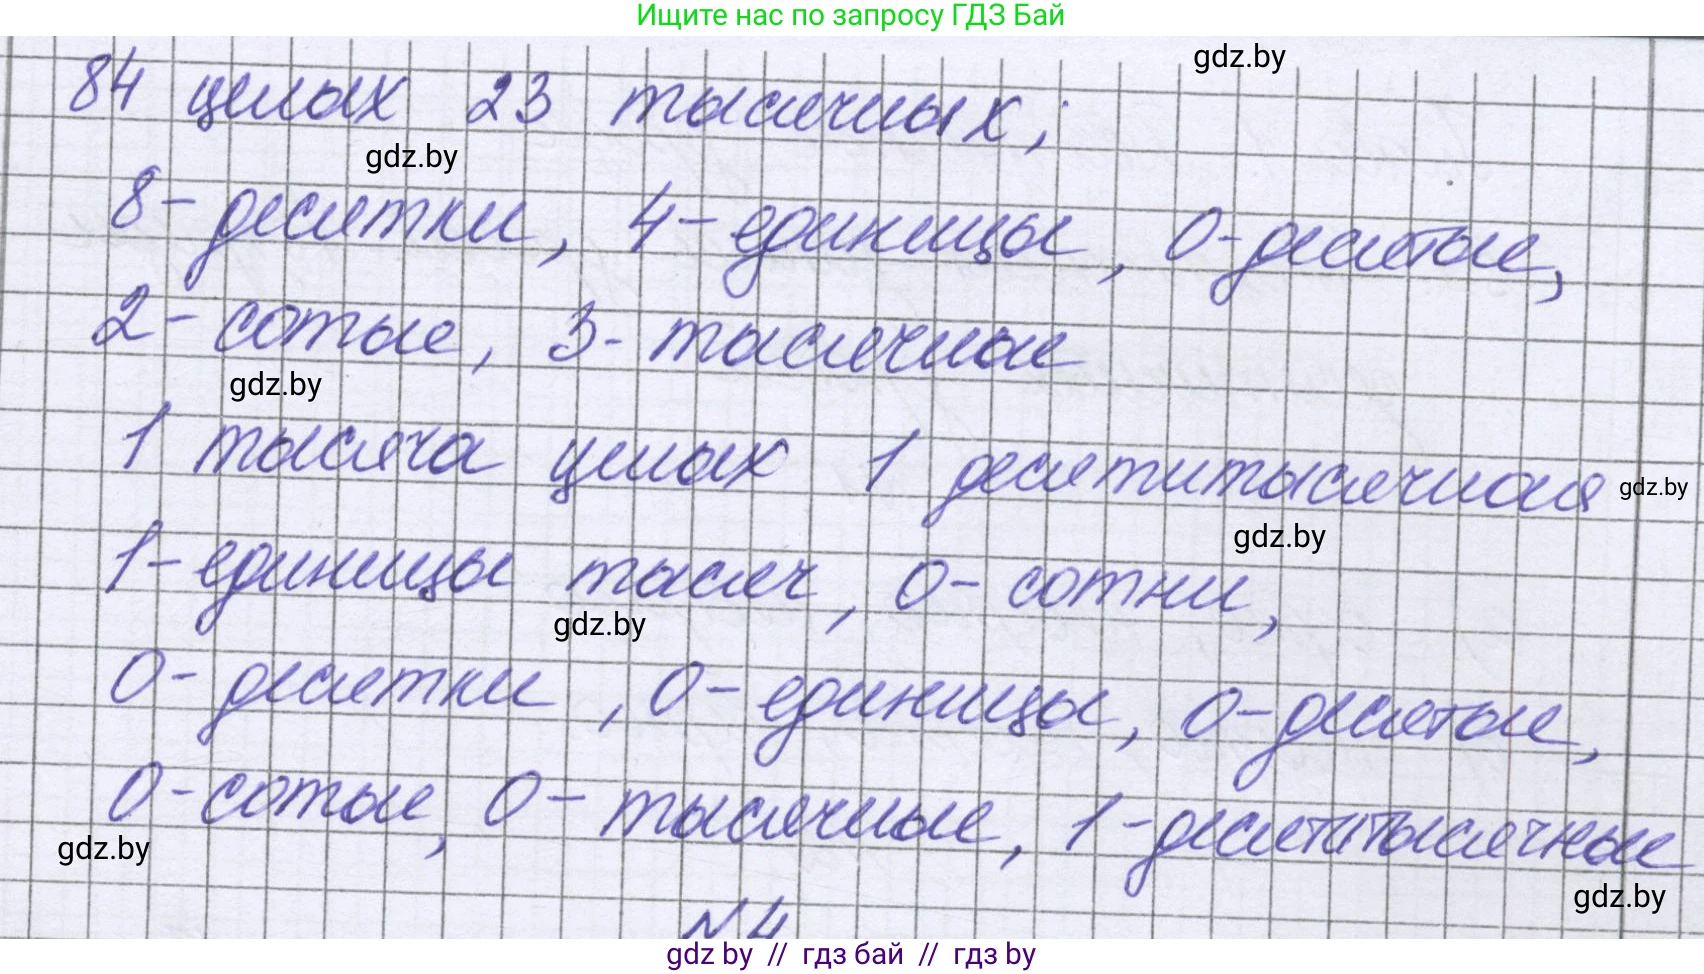 Ищите нас по запросу ГДЗ Бай
gdz.by
84 целых 23 тысячных;
gdz.by
8- десятки, 4- единицы, 0- десятые,
2- сотые, 3- тысячные
gdz.by
1 тысяча целых 1 десятитысячная
gdz.by
gdz.by
1- единицы тысяч, 0- сотни,
gdz.by
0- десятки, 0- единицы, 0- десятые,
0- сотые, 0- тысячные, 1- десятитысячные
gdz.by
gdz.by
№4
gdz by // гдз бай // гдз by